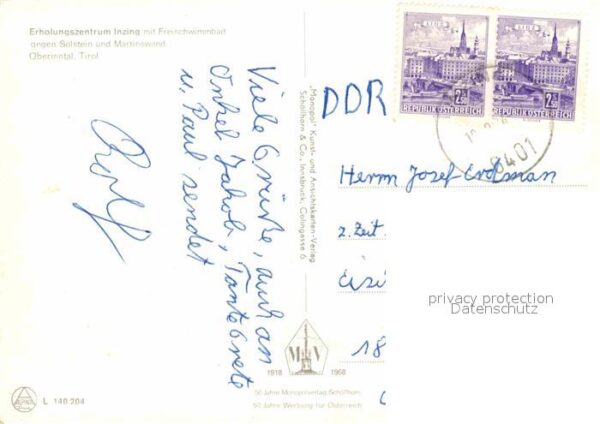 Erholungszentrum Inzing mit Freischwimmbad
gegen Solstein und Martinswand
Oberinntal, Tirol
Viele Grüße, auch an
Onkel Jakob, Tante Grete
u. Paul sendet
Rolf
"Monopol" Kunst- und Ansichtskarten-Verlag
Schöllhorn & Co., Innsbruck, Colingasse 6
DDR
LINZ
2.50
REPUBLIK ÖSTERREICH
LINZ
2.50
REPUBLIK ÖSTERREICH
8401
Herrn Josef Erdman
z. Zeit
privacy protection
Datenschutz
18
MV
1918 1968
50 Jahre Monopolverlag Schöllhorn
50 Jahre Werbung für Österreich
L 140 204